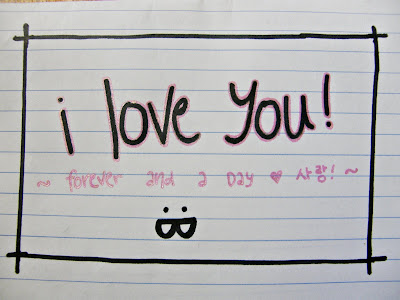 i love you!
~ forever and a day ♥ 사랑! ~